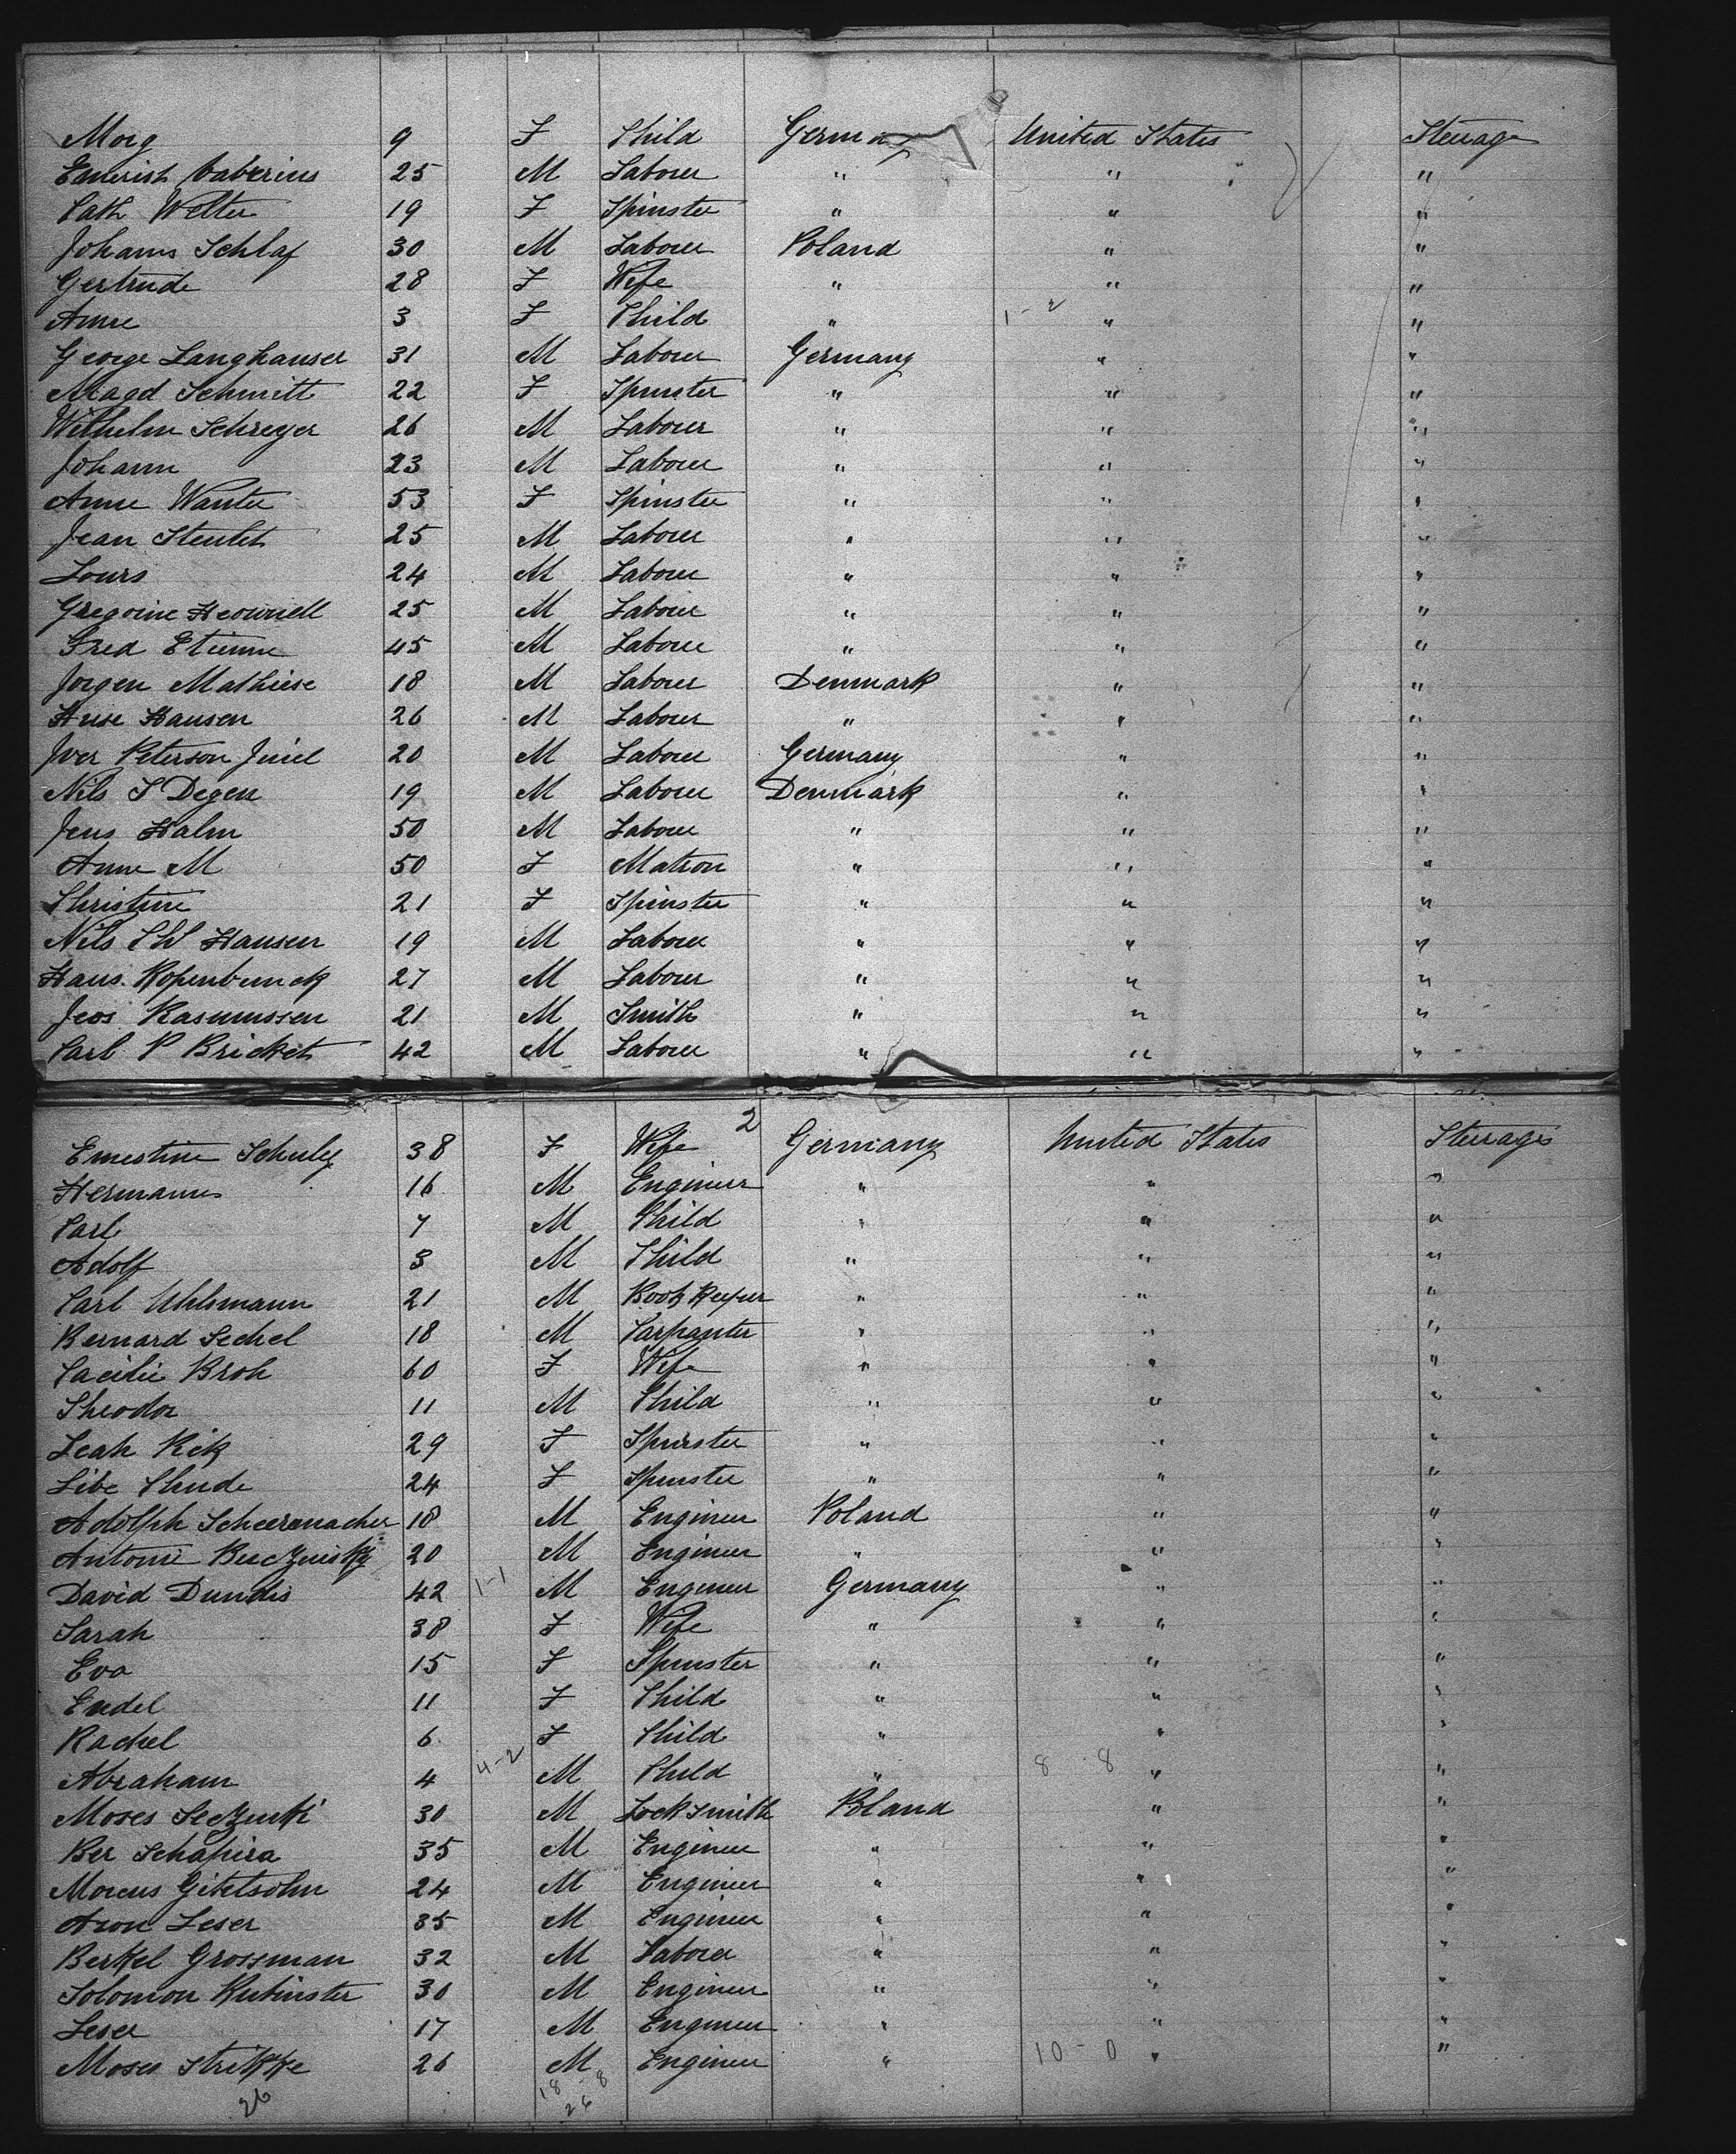 Morg 9 F Child Germany United States Steerage
Emerish Caberius 25 M Labourer " " "
Cath Welter 19 F Spinster " " "
Johanns Schlaf 30 M Labourer Poland " "
Gertrude 28 F Wife " " "
Anne 3 F Child " 1-2 " "
George Langhauser 31 M Labourer Germany " "
Magd Schmitt 22 F Spinster " " "
Wilhelm Schreyer 26 M Labourer " " "
Johann 23 M Labourer " " "
Anne Wanter 53 F Spinster " " "
Jean 25 M Labourer " " "
Louis 24 M Labourer " " "
Gregoire 25 M Labourer " " "
Fred Etienne 45 M Labourer " " "
Jorgen Mathiese 18 M Labourer Denmark " "
Hansen 26 M Labourer " " "
Iver Peterson Juiel 20 M Labourer Germany " "
Nils S Degen 19 M Labourer Denmark " "
Jens Halm 50 M Labourer " " "
Anne M 50 F Matron " " "
Christine 21 F Spinster " " "
Nils Chr Hansen 19 M Labourer " " "
Hans 27 M Labourer " " "
Jens Rasmussen 21 M Smith " " "
Carl P Bricket 42 M Labourer " " "
2
Ernestine Schulz 38 F Wife Germany United States Steerage
Hermann 16 M Engineer " " "
Carl 7 M Child " " "
Adolf 3 M Child " " "
Carl Uhlsmann 21 M Book Keeper " " "
Bernard Sechel 18 M Carpanter " " "
Cacilie Broh 60 F Wife " " "
Theodor 11 M Child " " "
Leah Kik 29 F Spinster " " "
Libe 24 F Spinster " " "
Adolph Scheeremacher 18 M Engineer Poland " "
Antonie 20 M Engineer " " "
David Dundis 42 1-1 M Engineer Germany " "
Sarah 38 F Wife " " "
Eva 15 F Spinster " " "
Endel 11 F Child " " "
Rachel 6 F Child " " "
Abraham 4 4-2 M Child " 8 8 " "
Moses 30 M Locksmith Poland " "
Ber Schapira 35 M Engineer " " "
Marcus Gitelsohn 24 M Engineer " " "
Aron Leser 35 M Engineer " " "
Berkel Grossman 32 M Labourer " " "
Solomon Rubinster 30 M Engineer " " "
Leser 17 M Engineer " " "
Moses Strikke 26 M Engineer " 10-0 " "
26 18-8
26